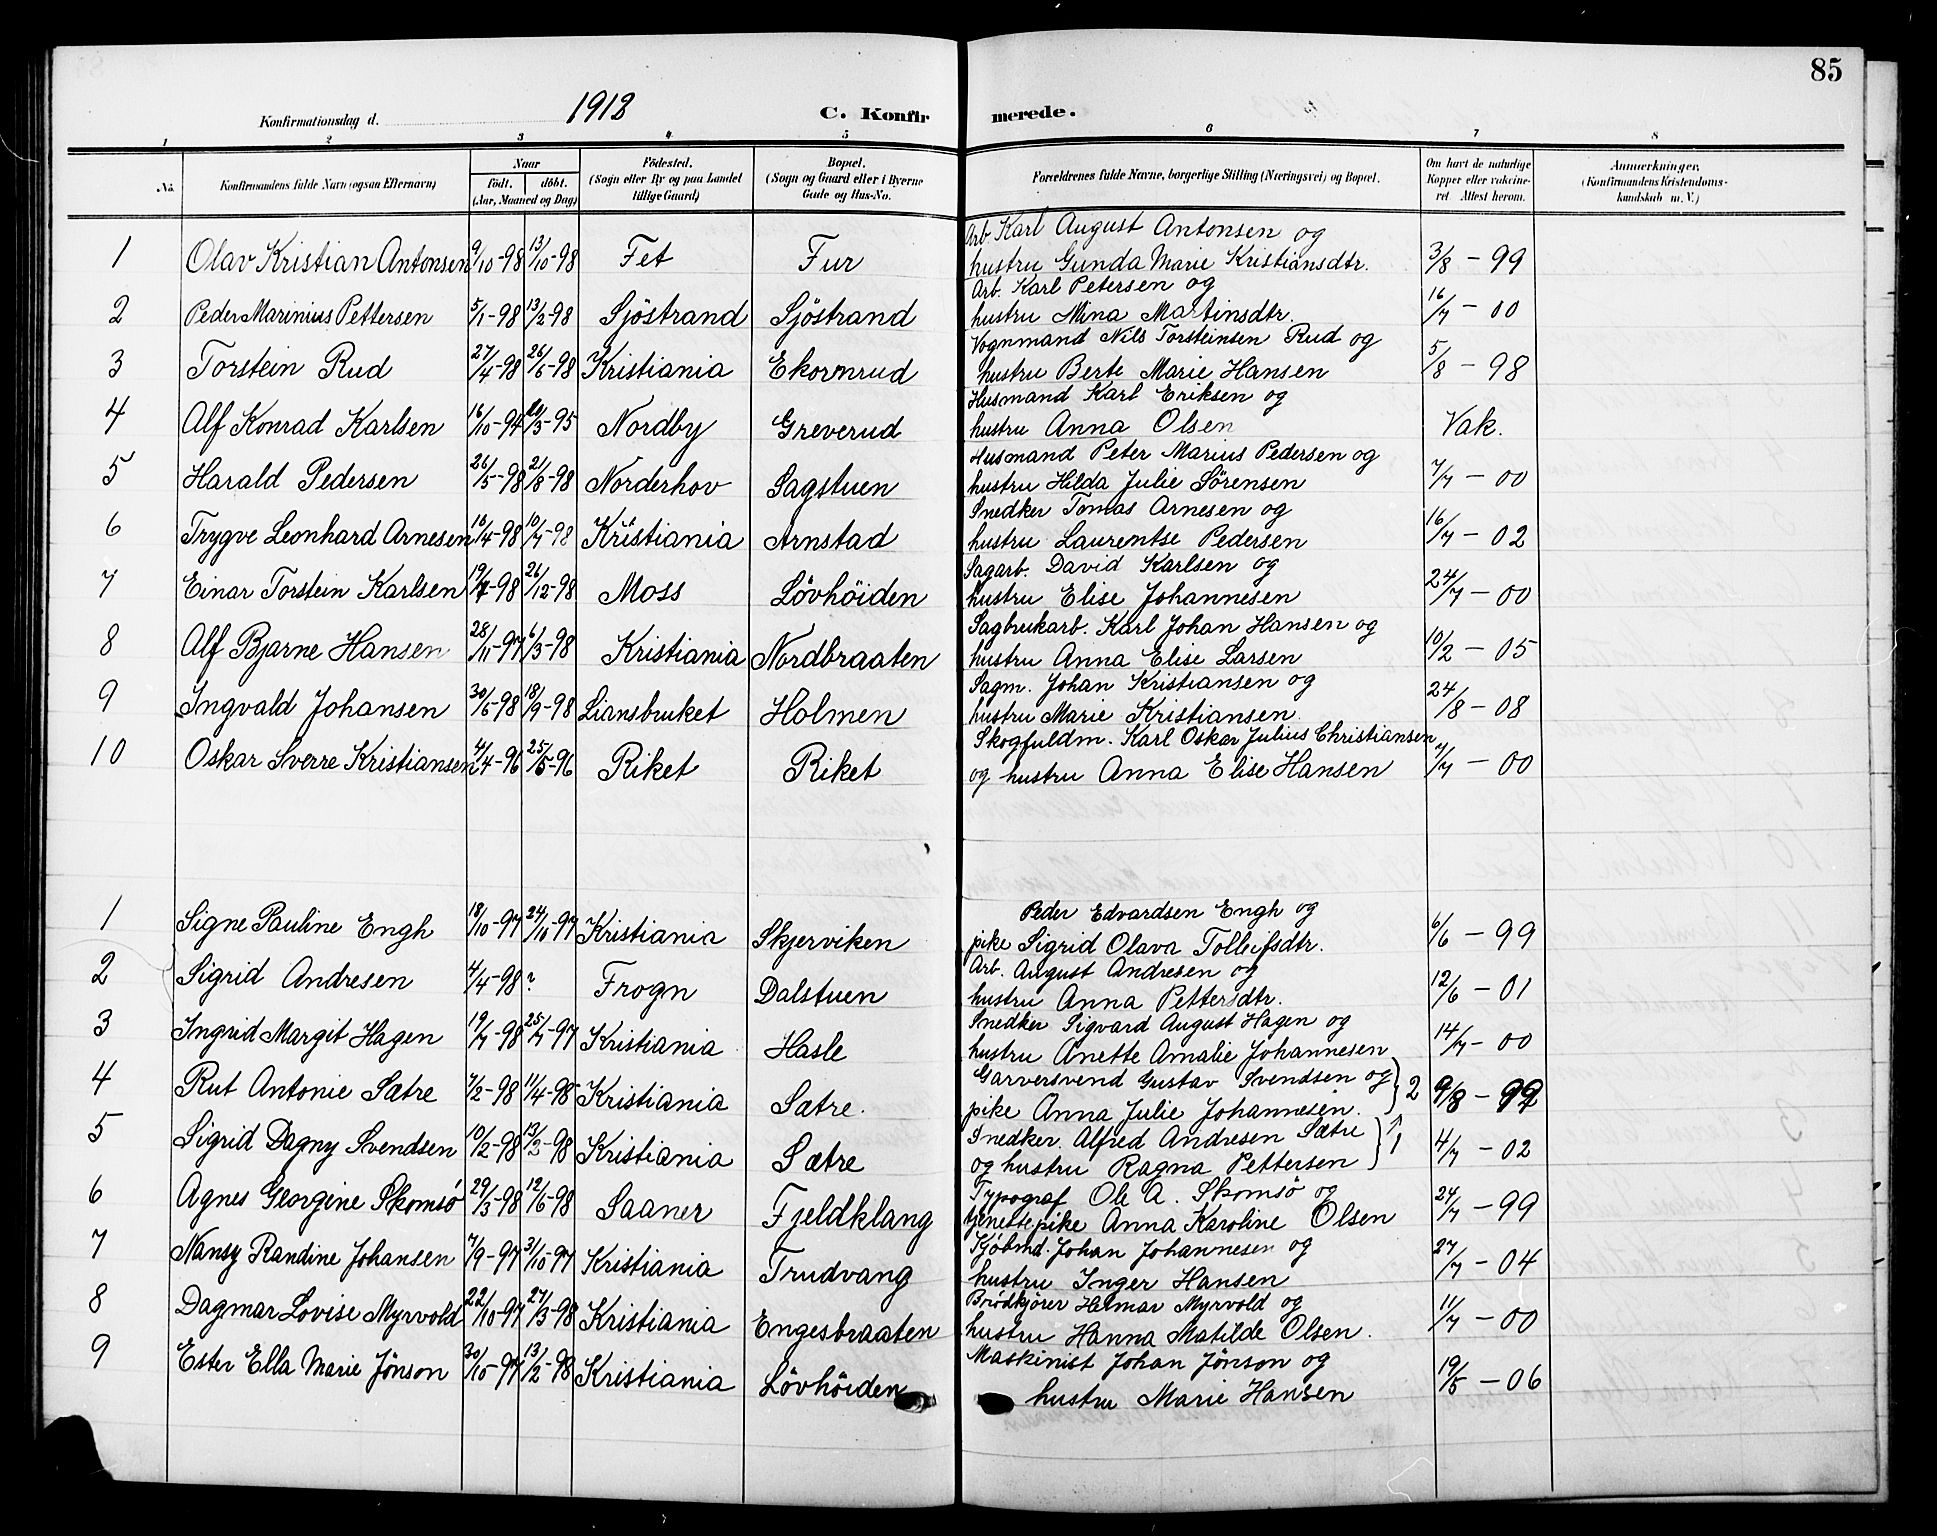 85
Konfirmationsdag d. 1912 C. Konfirmerede.
1 2 3 4 5 6 7 8
No. Konfirmandens fulde Navn (ogsaa Efternavn) Naar födt. döbt. (Aar, Maaned og Dag) Födested. (Sogn eller By og paa Landet tillige Gaard) Bopæl. (Sogn og Gaard eller i Byerne Gade og Hus-No. Forældrenes fulde Navne, borgerlige Stilling (Næringsvei) og Bopæl. Om havt de naturlige Kopper eller vakcineret. Attest herom. Anmerkninger, (Konfirmandens Kristendomskundskab m. V.)
Arb. Karl August Antonsen og
1 Olav Kristian Antonsen 9/10-98 13/10-98 Fet Fur hustru Gunda Marie Kristiansdtr. 3/8 - 99
Arb. Karl Petersen og
2 Peder Marinius Pettersen 5/1-98 13/2-98 Sjöstrand Sjöstrand hustru Mina Martinsdtr. 16/7 - 00
Vognmand Nils Torsteinsen Rud og
3 Torstein Rud 27/4-98 26/6-98 Kristiania Ekornrud hustru Berte Marie Hansen 5/8 - 98
Husmand Karl Eriksen og
4 Alf Konrad Karlsen 16/10-94 /3-95 Nordby Greverud hustru Anna Olsen Vak.
Husmand Peter Marius Pedersen og
5 Harald Pedersen 26/5-98 21/8-98 Norderhov Sagstuen hustru Hilda Julie Sörensen 7/7 - 00
Snedker Tomas Arnesen og
6 Trygve Leonhard Arnesen 16/4-98 10/7-98 Kristiania Arnstad hustru Laurentse Pedersen 16/7 - 02
Sagarb. David Karlsen og
7 Einar Torstein Karlsen 19/7-98 26/12-98 Moss Lövhöiden hustru Elise Johannesen 24/7 - 00
Sagbrukarb. Karl Johan Hansen og
8 Alf Bjarne Hansen 28/11-97 6/3-98 Kristiania Nordbraaten hustru Anna Elise Larsen 10/2 - 05
Sagm. Johan Kristiansen og
9 Ingvald Johansen 30/5-98 18/9-98 Liansbruket Holmen hustru Marie Kristiansen. 24/8 - 08
Skogfuldm. Karl Oskar Julius Christiansen
10 Oskar Sverre Kristiansen 4/4-96 25/5-96 Riket Riket og hustru Anna Elise Hansen /7 - 00
Peder Edvardsen Engh og
1 Signe Pauline Engh 18/10-97 24/10-97 Kristiania Skjerviken pike Sigrid Olava Tolleifsdtr. 6/6 - 99
Arb. August Andresen og
2 Sigrid Andresen 4/4-98 ? Frogn Dalstuen hustru Anna Pettersdtr. 12/6 - 01
Snedker Sigvard August Hagen og
3 Ingrid Margit Hagen 19/7-98 25/7-97 Kristiania Hasle hustru Anette Amalie Johannesen 14/7 - 00
Garversvend Gustav Svendsen og
4 Rut Antonie Sætre 7/2-98 11/4-98 Kristiania Sætre. pike Anna Julie Johannesen. } 2 9/8 - 99
Snedker. Alfred Andresen Sætre
5 Sigrid Dagny Svendsen 10/2-98 13/2-98 Kristiania Sætre og hustru Ragna Pettersen } 1 4/7 - 02
Typograf Ole A. Skomsö og
6 Agnes Georgine Skomsö 29/3-98 12/6-98 Saaner Fjeldklang tjenestepike Anna Karoline Olsen 24/7 - 99
Kjöbmd. Johan Johannesen og
7 Nansy Randine Johansen 7/9-97 31/10-97 Kristiania Trudvang hustru Inger Hansen 27/7 - 04
Brödkjörer Helmar Myrvold og
8 Dagmar Lovise Myrvold 22/10-97 27/3-98 Kristiania Engesbraaten hustru Hanna Matilde Olsen. 11/7 - 00
Maskinist Johan Jönson og
9 Ester Ella Marie Jönson 30/10-97 13/2-98 Kristiania Lövhöiden hustru Marie Hansen 19/5 - 06